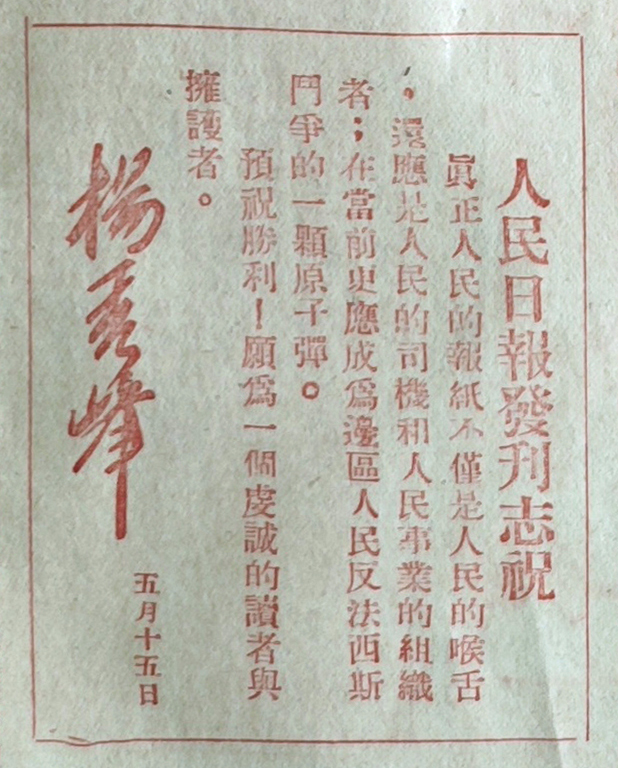 人民日報發刊志祝
眞正人民的報紙不僅是人民的喉舌
，還應是人民的司機和人民事業的組織
者；在當前更應成爲邊區人民反法西斯
鬥爭的一顆原子彈。
預祝勝利！願爲一個虔誠的讀者與
擁護者。
楊秀峰
五月十五日